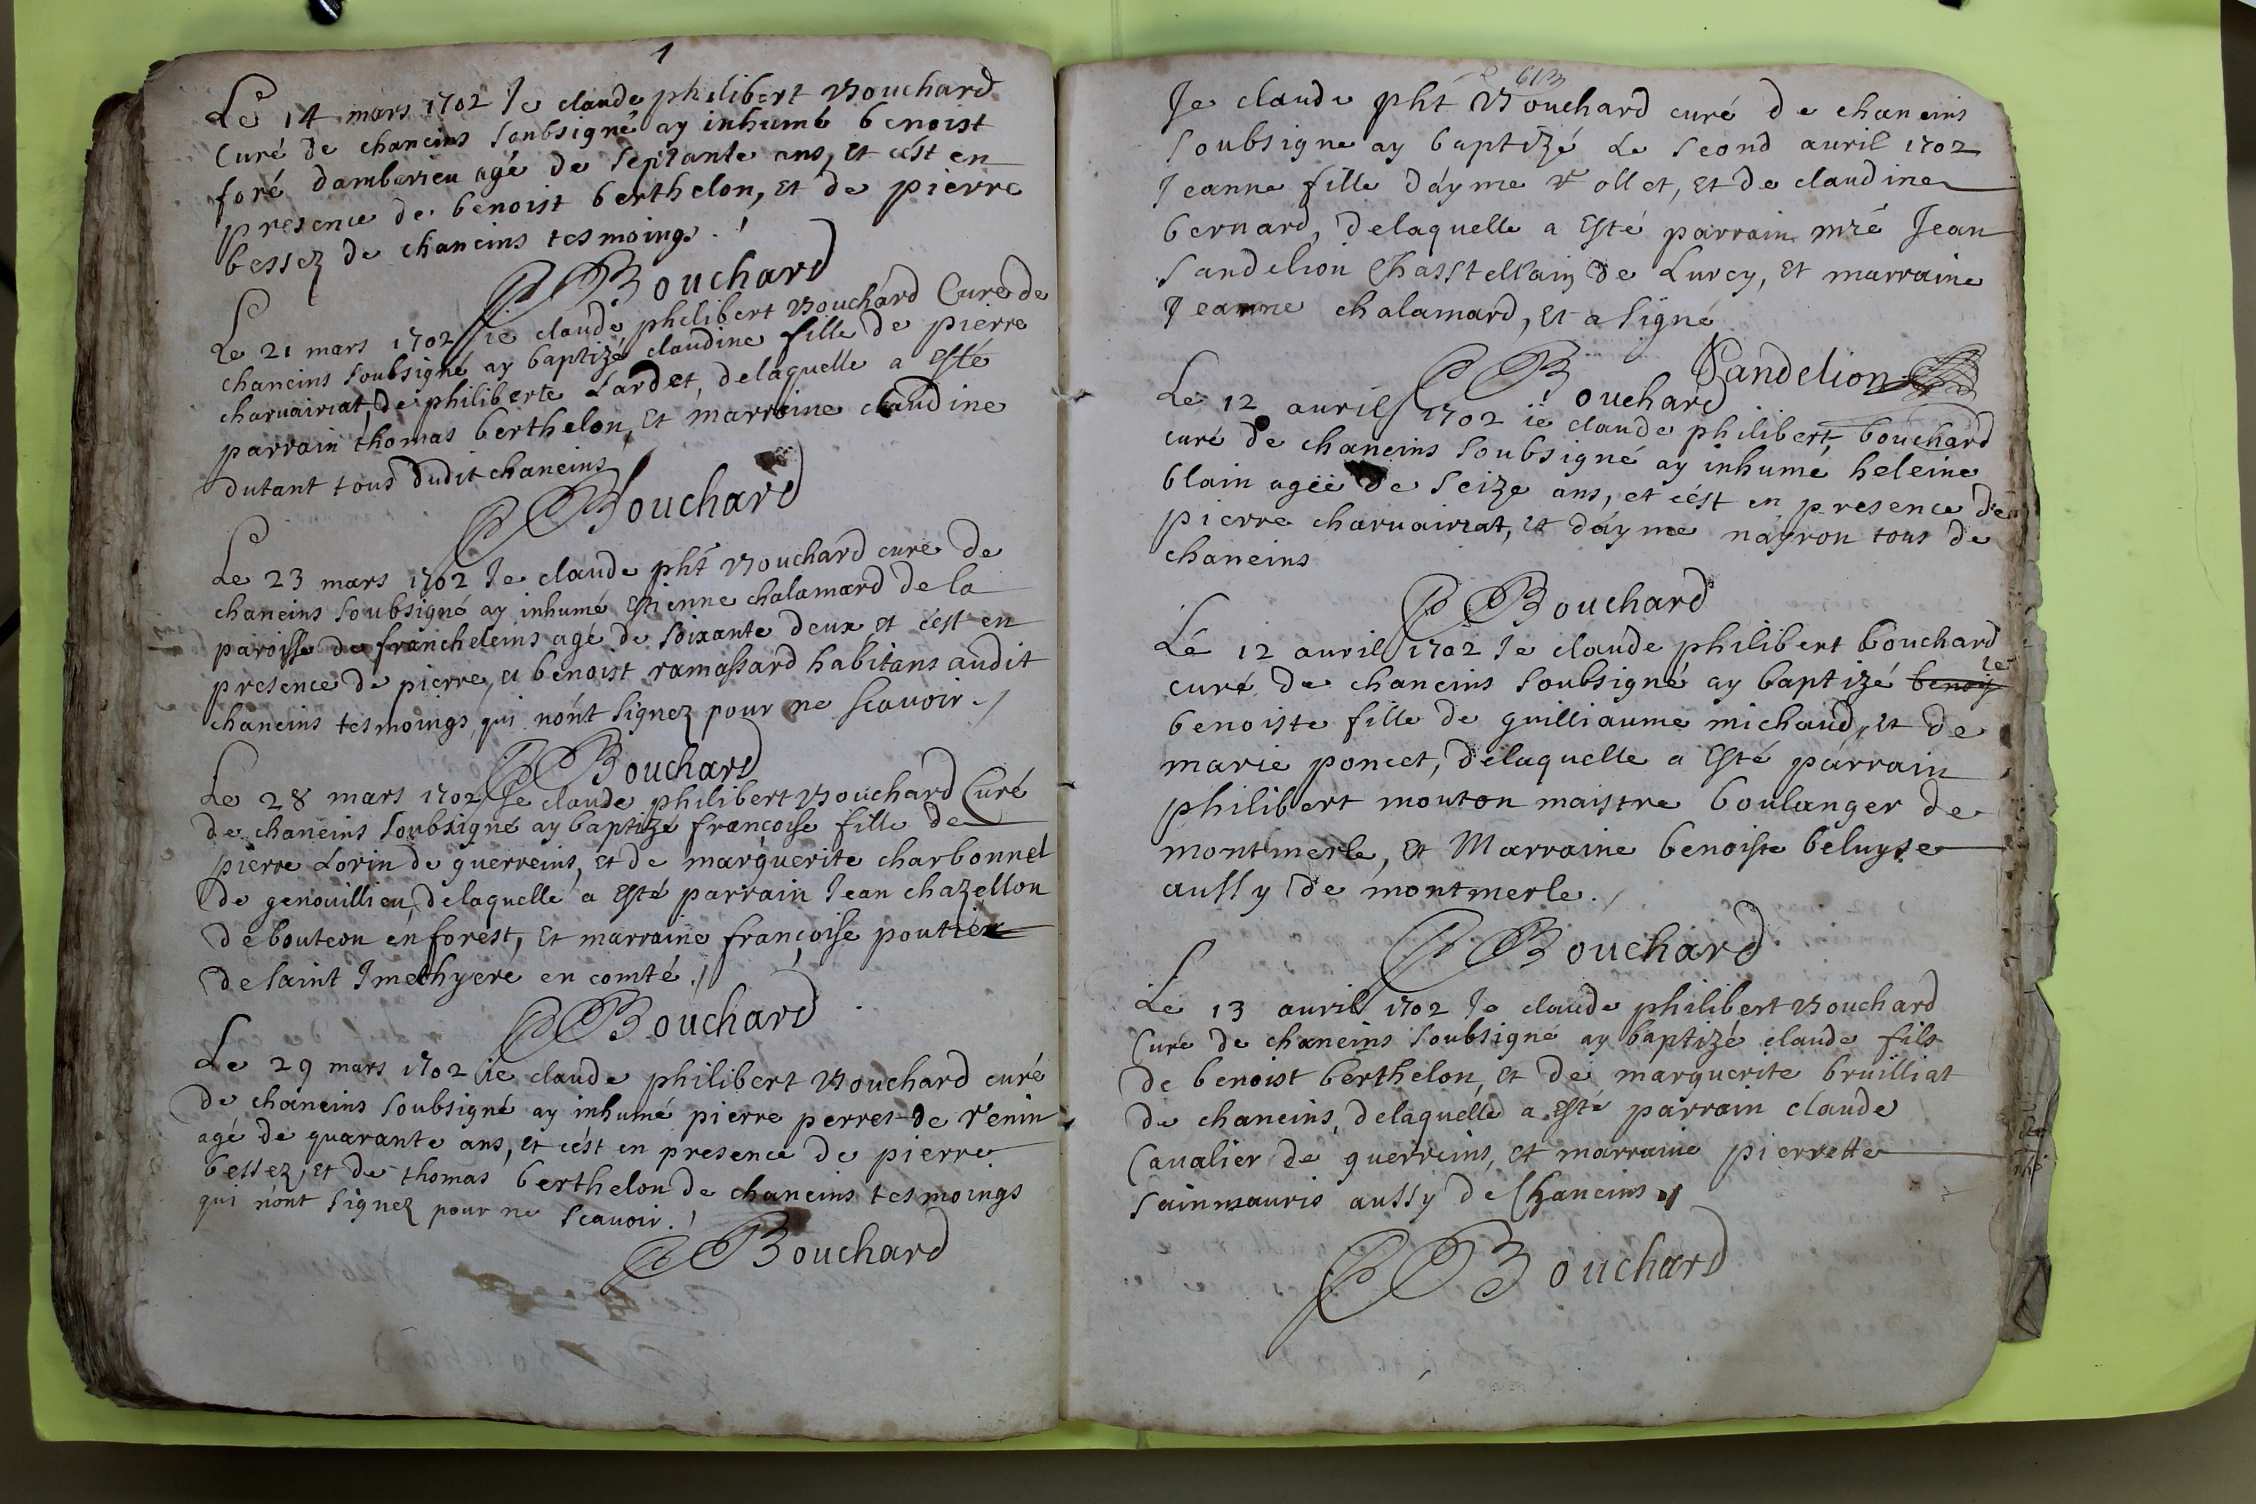 1
Le 14 mars 1702 Je claude philibert Bouchard
Curé de chaneins soubsigné ay inhumé benoist
foré damberieu agé de septante ans, et cést en
presence de benoist berthelon, et de pierre
bessez de chaneins tesmoings.
Bouchard
Le 21 mars 1702 ie claude philibert Bouchard Curé de
chaneins soubsigné ay baptizé claudine fille de pierre
charuairiat, de philiberte Lardet, delaquelle a esté
parrain thomas berthelon, et marraine claudine
dutant tous dudit chaneins
Bouchard
Le 23 mars 1702 Je claude pht Bouchard curé de
chaneins soubsigné ay inhumé estienne chalamard de la
paroisse de francheleins agé de soixante deux et cést en
presence de pierre, et benoist ramassard habitans audit
chaneins tesmoings, qui nónt signez pour ne scauoir.
Bouchard
Le 28 mars 1702 Je claude philibert Bouchard Curé
de chaneins soubsigné ay baptizé francoise fille de
pierre Lorin de guerreins, et de marguerite charbonnel
de genouillieu, delaquelle a esté parrain Jean chazellon
de bouteon en forest, et marraine françoise poutier
de saint Imethyere en comté.
Bouchard
Le 29 mars 1702 ie claude philibert Bouchard curé
de chaneins soubsigné ay inhumé pierre perret de renin
agé de quarante ans, et cést en presence de pierre
bessez, et de thomas berthelon de chaneins tesmoings
qui nónt signez pour ne scauoir.
Bouchard
613
Je claude pht Bouchard curé de chaneins
soubsigne ay baptizé Le second auril 1702
Jeanne fille dáyme rollet, et de claudine
bernard, delaquelle a esté parrain mré Jean
Sandelion Chasstellain de Lurcy, et marraine
Jeanne chalamard, et a signé
Bouchard Sandelion
Le 12 auril 1702 ie claude philibert bouchard
curé de chaneins soubsigné ay inhumé heleine
blain agée de seize ans, et cést en presence de
pierre charuairiat, et dáyme náyron tous de
chaneins
Bouchard
Le 12 auril 1702 Je claude philibert bouchard
curé de chaneins soubsigné ay baptizé benoy
benoiste fille de guilliaume michaud, et de
marie poncet, delaquelle a esté parrain
philibert mouton maistre boulanger de
montmerle, et Marraine benoiste beluyse
aussy de montmerle.
Bouchard
Le 13 auril 1702 Je claude philibert Bouchard
Curé de chaneins soubsigné ay baptizé claude fils
de benoist berthelon, et de marguerite bruilliat
de chaneins, delaquelle a esté parrain claude
Caualier de guerreins, et marraine pierrette
sainmauris aussy de Chaneins
Bouchard